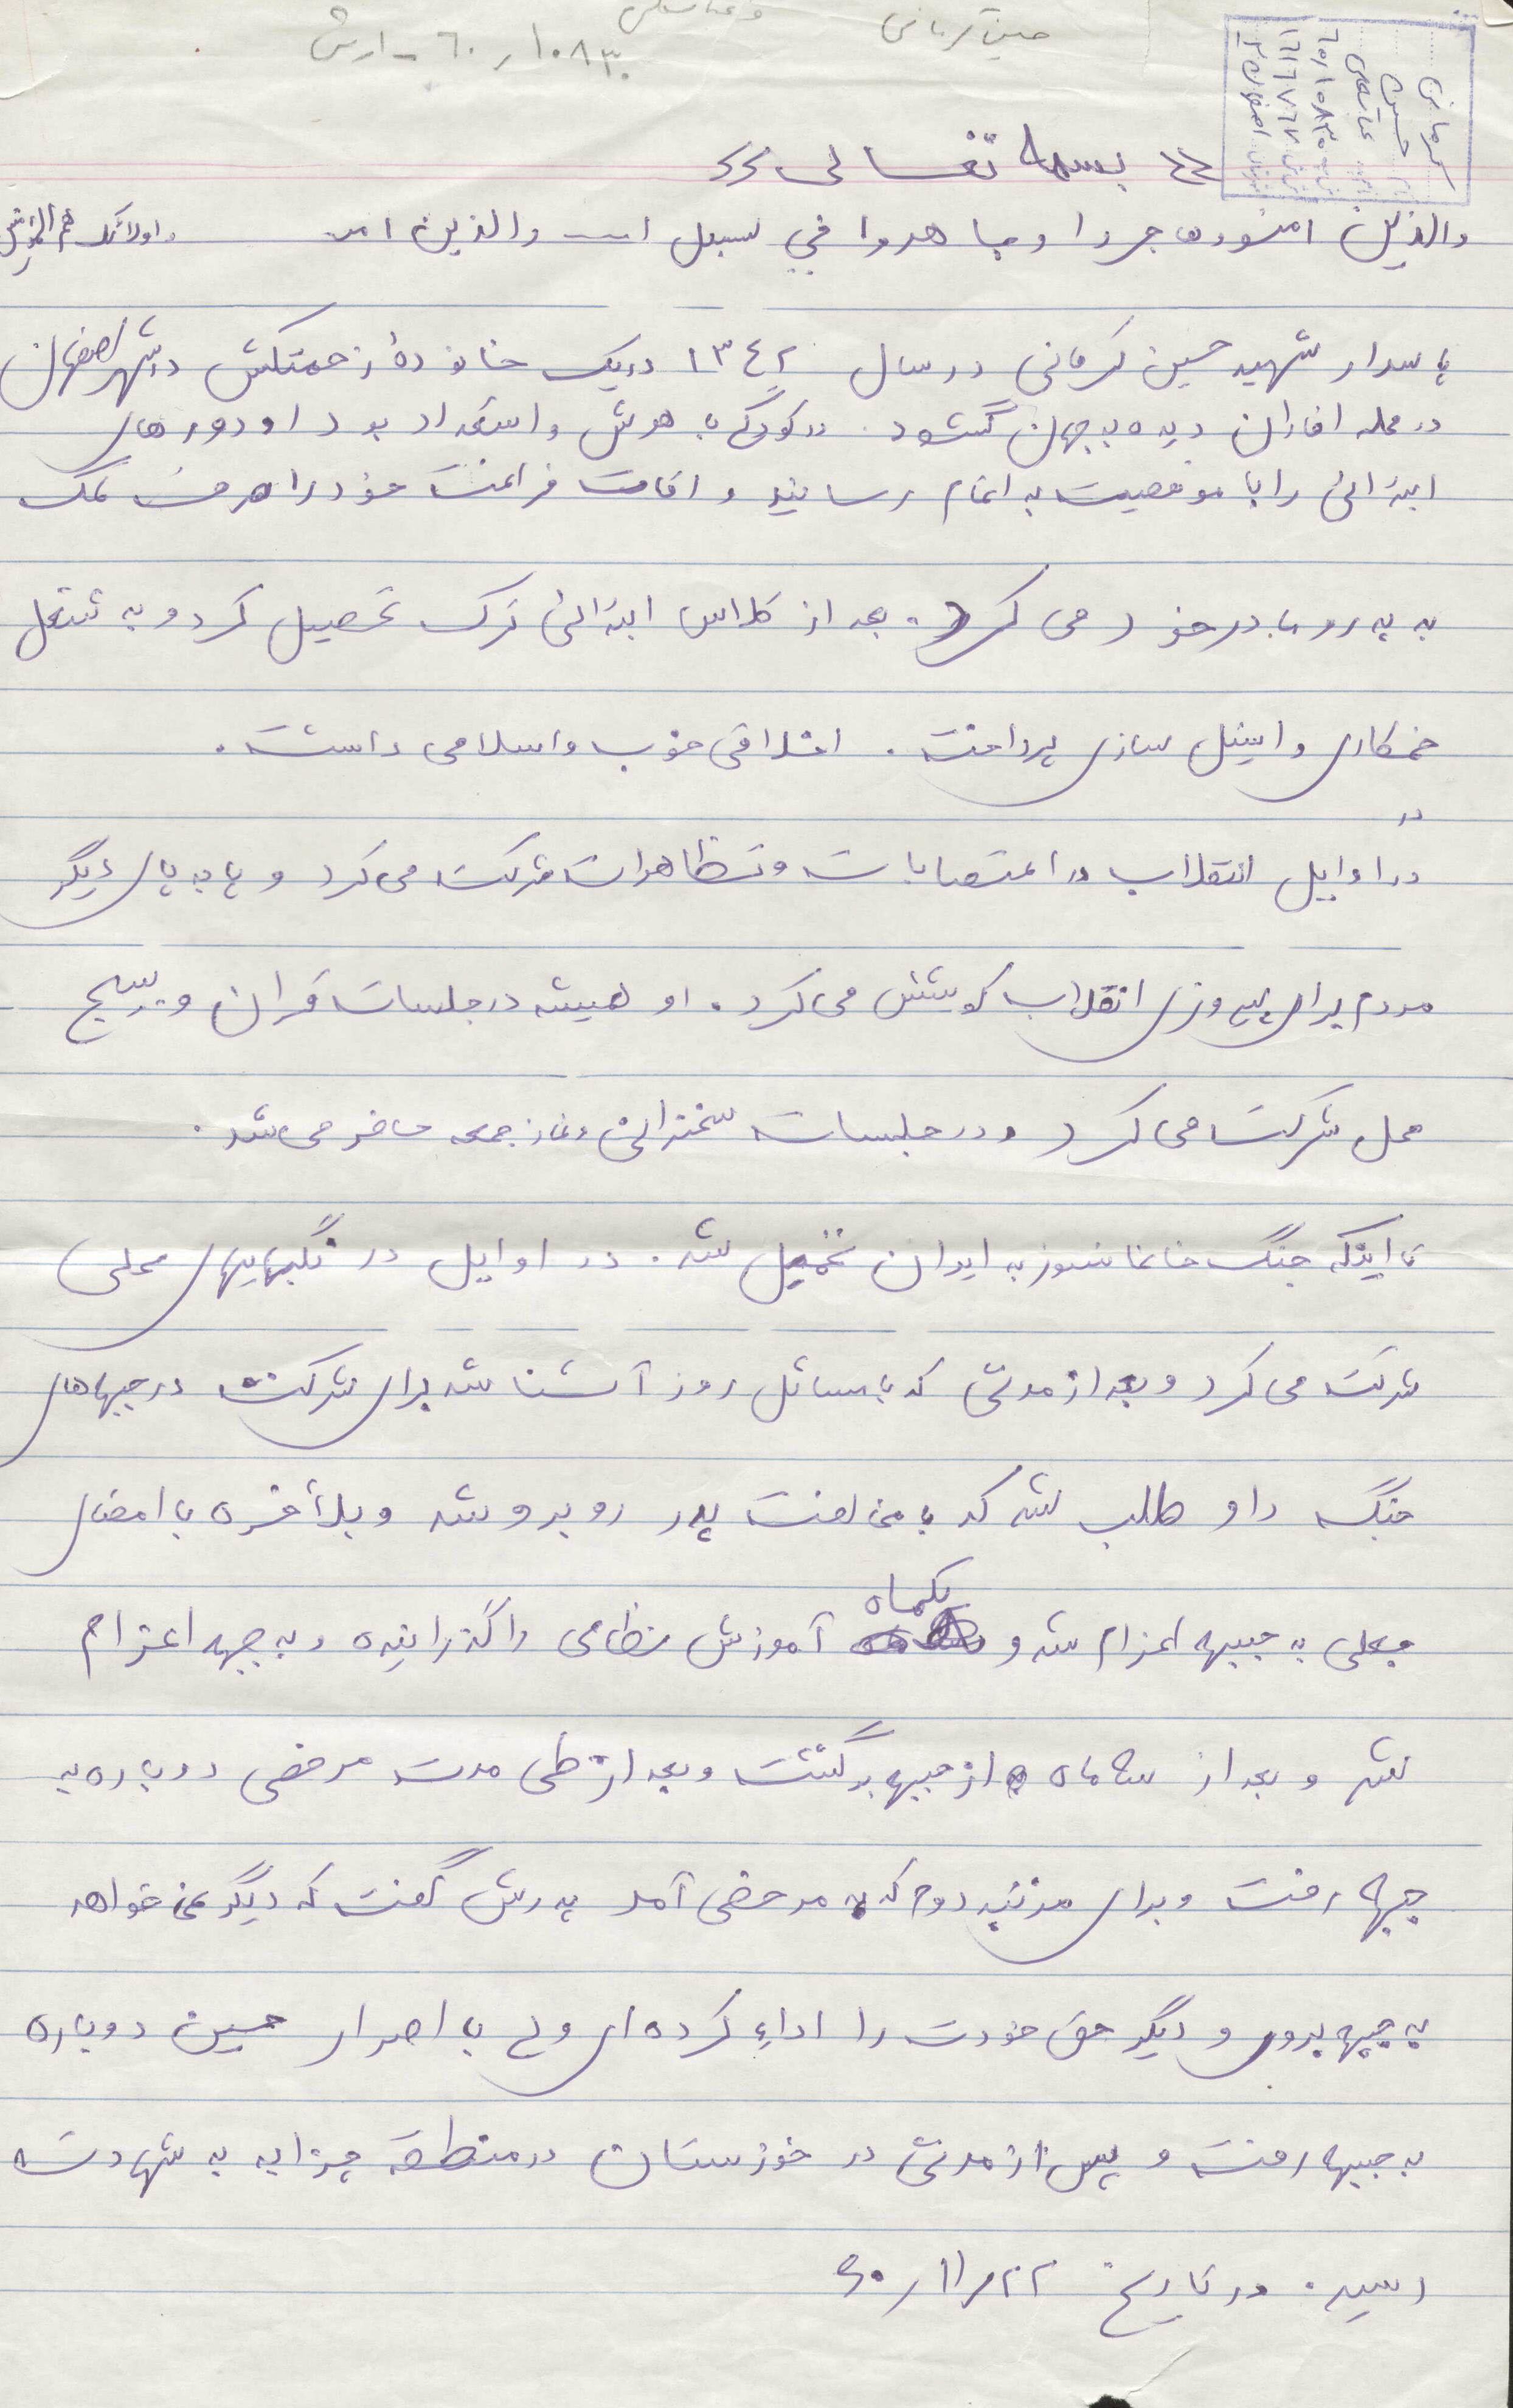 حسین کرمانی
عباسعلی
۶۰/۱۰۸۳۰ - ارتش
کرمانی
حسین
عباسعلی
۶۰/۱۰۸۳۰
۱۶۱۶۷۶۷
اصفهان
«بسمه تعالی»
والذین امنو وهاجروا وجاهدوا في سبیل ا... والذین امن واولائک هم المؤمنون
پاسدار شهید حسین کرمانی در سال ۱۳۴۲ دریک خانودهٔ زحمتکش در شهر اصفهان
در محله افاران دیده به جهان گشود. در کودکی با هوش واستعداد بود او دورهای
ابتدائی را با موفقیت به اتمام رسانید و اقامت فراغت خود را صرف کمک
به پدر و مادر خود می کرد. بعد از کلاس ابتدائی ترک تحصیل کرد و به شغل
خمکاری و استیل سازی پرداخت. اخلاقی خوب واسلامی داشت.
در
در اوایل انقلاب در اعتصابات وتظاهرات شرکت می کرد و پا به پای دیگر
مردم برای پیروزی انقلاب کوشش می کرد. او همیشه در جلسات قران و بسیج
محل شرکت می کرد و در جلسات سخنرانی ونماز جمعه حاضر می شد.
تا اینکه جنگ خانمانسوز به ایران تحمیل شد. در اوایل در نگهبانیهای محلی
شرکت می کرد و بعد از مدتی که با مسائل روز آشنا شد برای شرکت در جبهه‌های
جنگ داو طلب شد که با مخالفت پدر روبرو شد و بلأخره با امضای
جعلی به جبهه اعزام شد و یکماه آموزش نظامی را گذرانیده و به جبهه اعزام
شد و بعد از سه ماه از جبهه برگشت و بعد از طی مدت مرخصی دوباره به
جبهه رفت و برای مرتبه دوم که به مرخصی آمد پدرش گفت که دیگر نمی خواهد
به جبهه بروی و دیگر حق خودت را اداء کرده ای ولی با اصرار حسین دوباره
به جبهه رفت و پس از مدتی در خوزستان در منطقه چزابه به شهادت
رسید. در تاریخ ۶۰/۱۱/۲۲